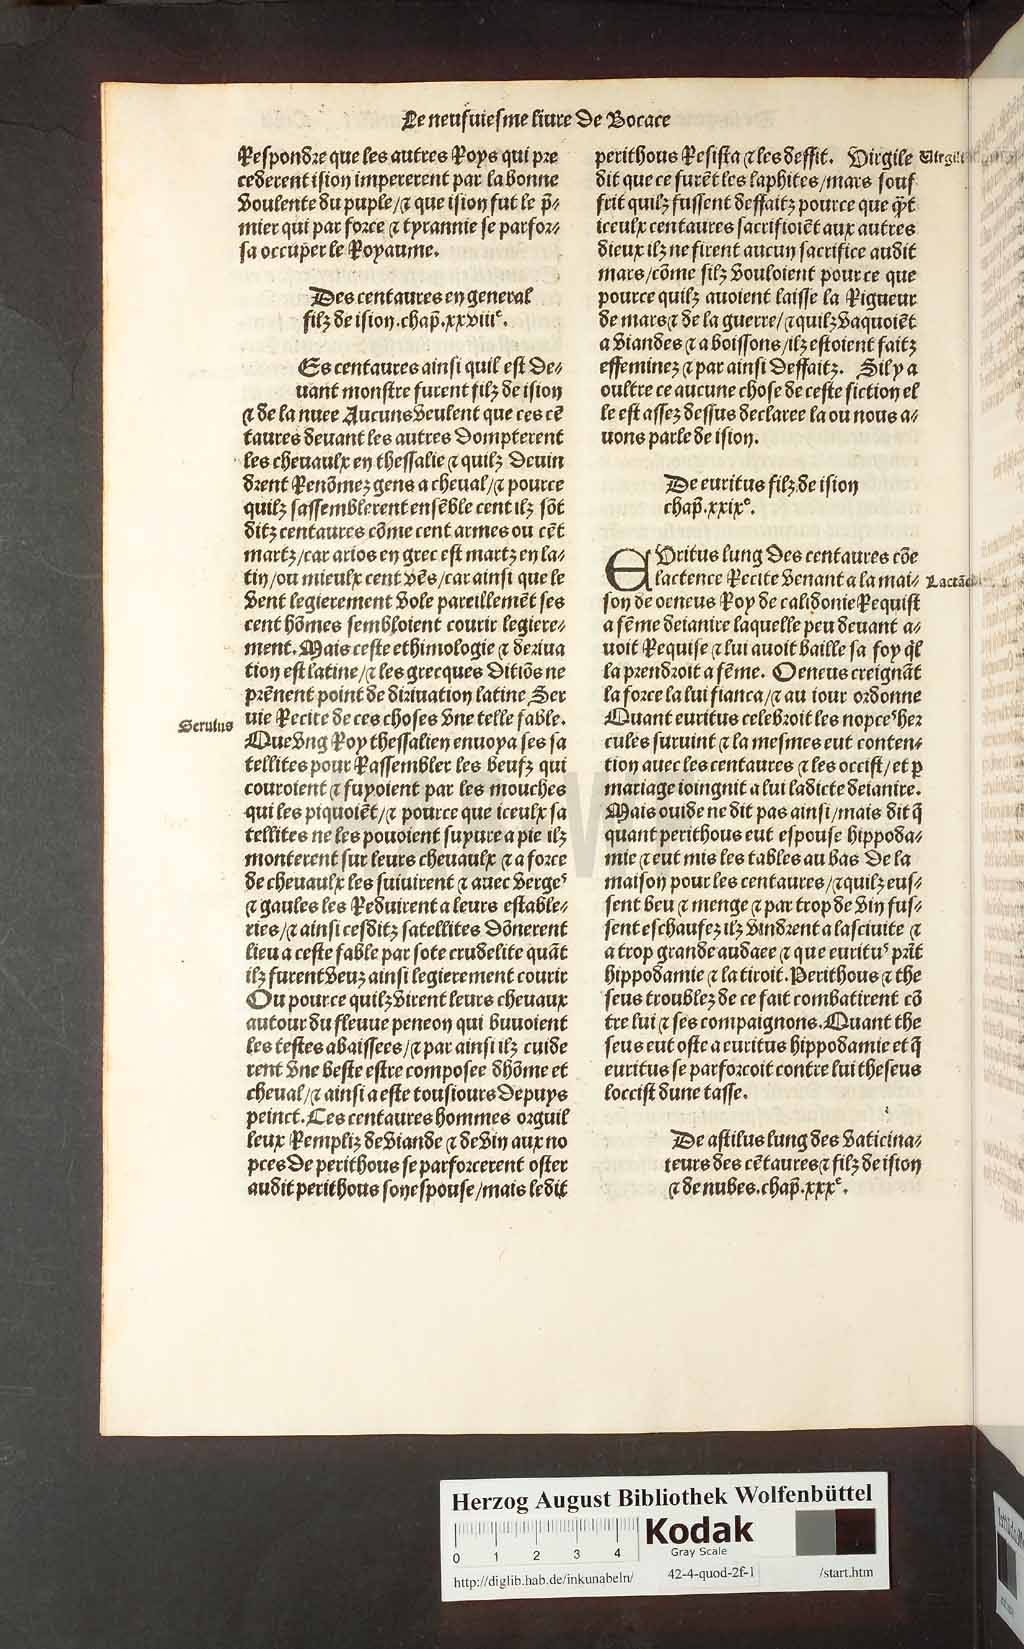 Le neufuiesme liure De Bocace
Respondre que les autres Roys qui pre
cederent ision impererent par la bonne
voulente du puple/⁊ que ision fut le p̃-
mier qui par force ⁊ tyrannie se parfor-
sa occuper le Royaume.
Des centaures en general
filz de ision.chap̃.xxviiiᵉ.
Es centaures ainsi quil est de-
uant monstre furent filz de ision
⁊ de la nuee Aucuns veulent que ces cẽ
taures deuant les autres dompterent
les cheuaulx en thessalie ⁊ quilz deuin
drent Renõmez gens a cheual/⁊ pource
quilz sassemblerent ensẽble cent ilz sõt
ditz centaures cõme cent armes ou cẽt
martz/car arios en grec est martz en la-
tin/ou mieulx cent vẽs/car ainsi que le
vent legierement vole pareillemẽt ses
cent hõmes sembloient courir legiere-
ment.Mais ceste ethimologie ⁊ deriua
tion est latine/⁊ les grecques ditiõs ne
prẽnent point de diriuation latine Ser
uie Recite de ces choses vne telle fable.
Seruius
Que vng Roy thessalien enuoya ses sa
tellites pour Rassembler les beufz qui
couroient ⁊ fuyoient par les mouches
qui les piquoiẽt/⁊ pource que iceulx sa
tellites ne les pouoient suyure a pie ilz
monterent sur leurs cheuaulx ⁊ a force
de cheuaulx les suiuirent ⁊ auec vergeˢ
⁊ gaules les Reduirent a leurs estable-
ries/⁊ ainsi cesditz satellites dõnerent
lieu a ceste fable par sote crudelite quãt
ilz furent veuz ainsi legierement courir
Ou pource quilz virent leurs cheuaux
autour du fleuue peneon qui buuoient
les testes abaissees/⁊ par ainsi ilz cuide
rent vne beste estre composee dhõme et
cheual/⁊ ainsi a este tousiours depuys
peinct.Les centaures hommes orguil
leux Rempliz de viande ⁊ de vin aux no
pces de perithous se parforcerent oster
audit perithous son espouse/mais ledit
perithous Resista ⁊ les deffit. Virgile
dit que ce furẽt les laphites/mars souf
frit quilz fussent deffaitz pource que q̃t
iceulx centaures sacrifioiẽt aux autres
dieux ilz ne firent aucun sacrifice audit
mars/cõme silz vouloient pource que
pource quilz auoient laisse la Rigueur
de mars ⁊ de la guerre/⁊ quilz vaquoiẽt
a viandes ⁊ a boissons/ilz estoient faitz
effeminez ⁊ par ainsi deffaitz. Sil y a
oultre ce aucune chose de ceste fiction el
le est assez dessus declaree la ou nous a-
uons parle de ision.
De euritus filz de ision
chap̃.xxixᵉ.
EVritus lung des centaures cõe
lactence Recite venant a la mai-
son de oeneus Roy de calidonie Requist
a fẽme deianire laquelle peu deuant a-
uoit Requise ⁊ lui auoit baille sa foy q̃l
la prendroit a fẽme. Oeneus creignãt
la force la lui fianca/⁊ au iour ordonne
Quant euritus celebroit les nopceˢ her
cules suruint ⁊ la mesmes eut conten-
tion auec les centaures ⁊ les occist/et ꝑ
mariage ioingnit a lui ladicte deianire.
Mais ouide ne dit pas ainsi/mais dit q̃
quant perithous eut espouse hippoda-
mie ⁊ eut mis les tables au bas de la
maison pour les centaures/⁊ quilz eus-
sent beu ⁊ menge ⁊ par trop de vin fus-
sent eschaufez ilz vindrent a lasciuite ⁊
a trop grande audace ⁊ que eurituˢ prĩt
hippodamie ⁊ la tiroit.Perithous ⁊ the
seus troublez de ce fait combatirent cõ
tre lui ⁊ ses compaignons.Quant the
seus eut oste a euritus hippodamie et q̃
euritus se parforcoit contre lui theseus
loccist dune tasse.
De astilus lung des vaticina-
teurs des cẽtaures ⁊ filz de ision
⁊ de nubes.chap̃.xxxᵉ.
Herzog August Bibliothek Wolfenbüttel
0 1 2 3 4
Kodak
Gray Scale
http://diglib.hab.de/inkunabeln/ 42-4-quod-2f-1 /start.htm